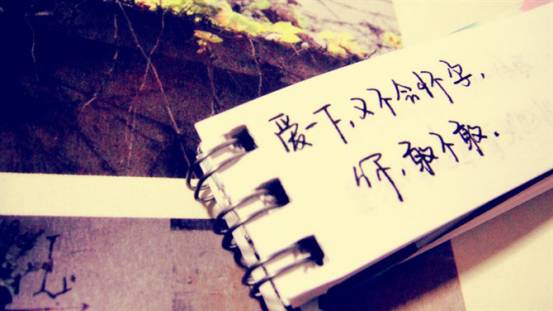 爱一下，又不会怀孕，
你，敢不敢。